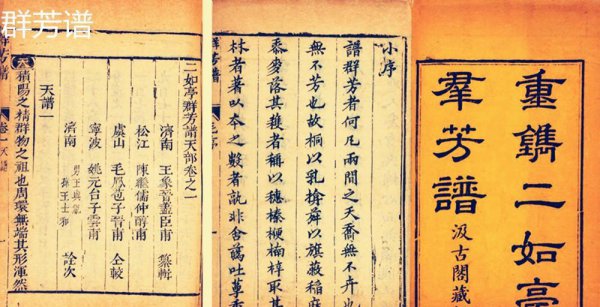 群芳谱
重鐫二如亭
羣芳譜
汲古閣藏
小序
譜群芳者何凡兩間之夭喬無不卉也
無不芳也故桐以乳 舜以旗薇稻麻
黍麥落其穫者稱以穗榛楩楠梓取其
林者著以本之數者孰非含 吐華
二如亭群芳譜天部卷之一
濟南 王象晉藎臣甫 纂輯
松江 陳繼儒仲醇甫
虞山 毛鳳苞子晉甫 仝較
寧波 姚元台子雲甫
濟南 男王與 孫王士和 詮次
天譜一
天積陽之精群物之祖也周環無端其形渾然
群芳譜 卷一 天譜